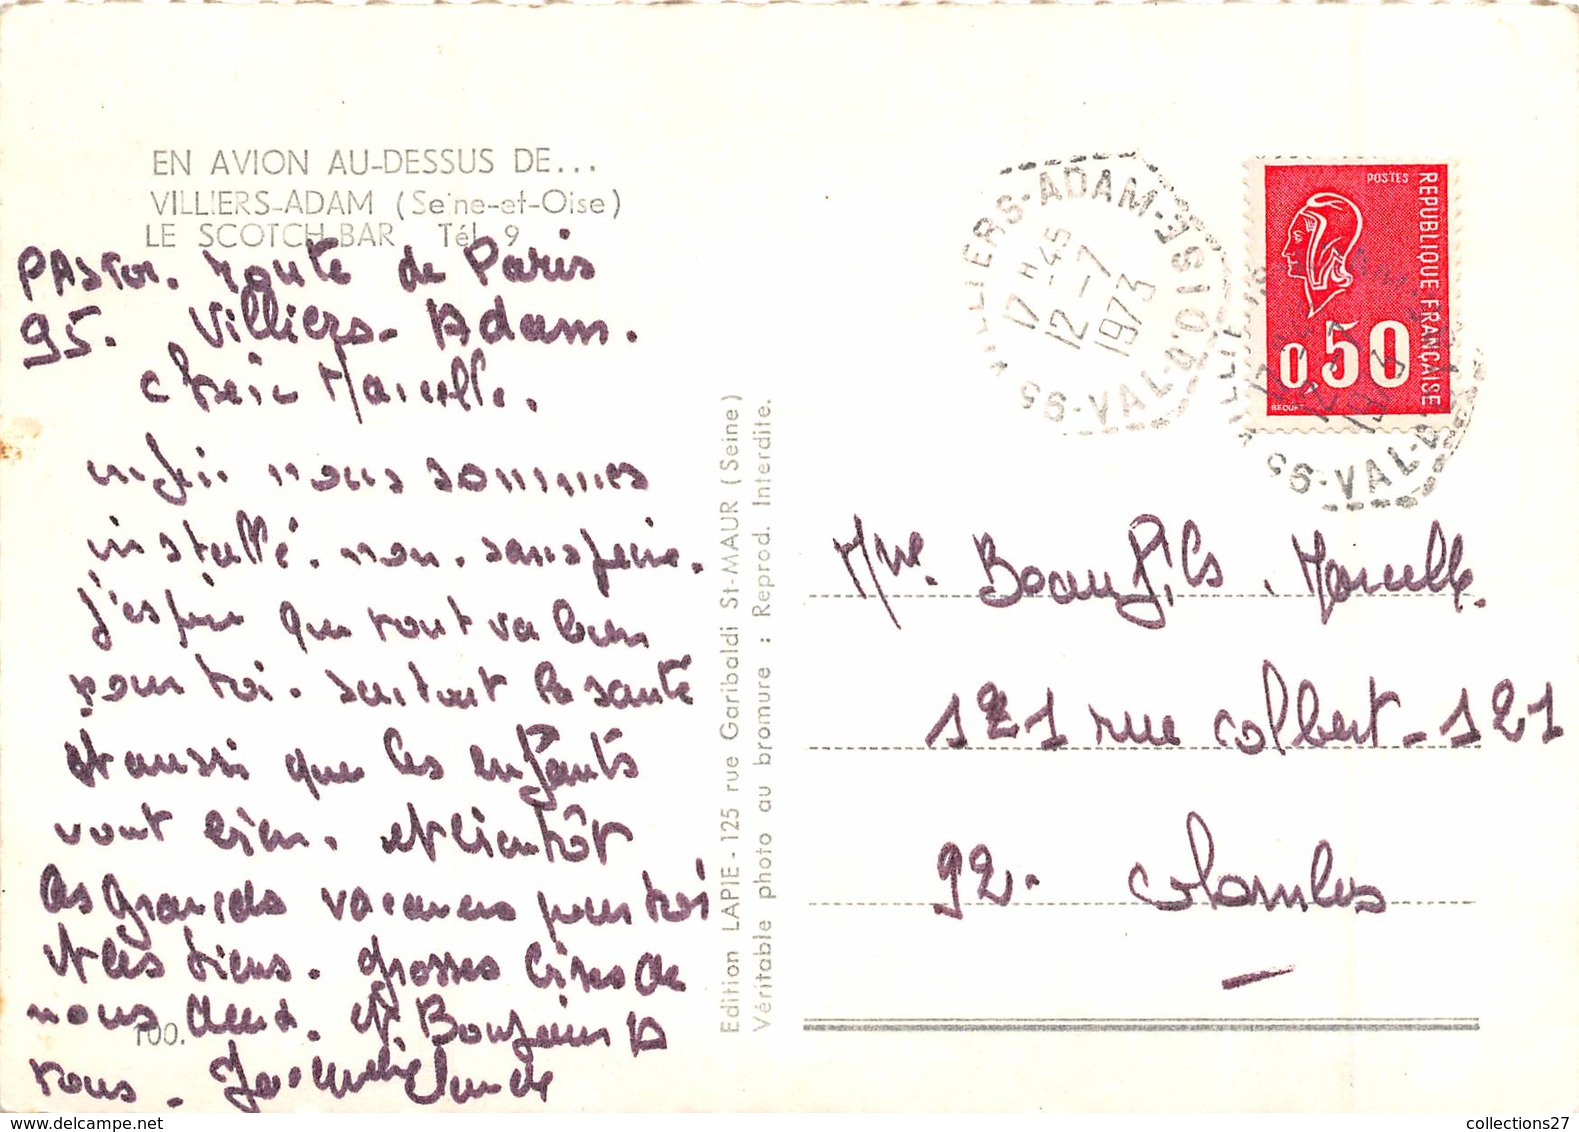 EN AVION AU-DESSUS DE...
VILLIERS-ADAM (Seine-et-Oise)
LE SCOTCH-BAR Tél. 9
PASTOR. route de Paris
95. Villiers-Adam.
Chère Marcelle.
enfin nous sommes
installé. non. sans peine.
j'espère que tout va bien
pour toi. surtout la santé
et aussi que les enfants
vont bien. et bientôt
les grandes vacances pour toi
et les tiens. grosses bises de
nous deux. et Bonjour à
tous. Jacqueline
100.
Edition LAPIE - 125 rue Garibaldi St-MAUR (Seine)
Véritable photo au bromure : Reprod. Interdite.
VILLIERS-ADAM
17 H 45
12 - 7
1973
95 - VAL-D'OISE
POSTES
REPUBLIQUE FRANÇAISE
0,50
BEQUET
VILLIERS
12 - 7
1973
95 - VAL-D'OISE
Mme. Beaufils. Marcelle.
121 rue Colbert - 121
92. Colombes
collections27